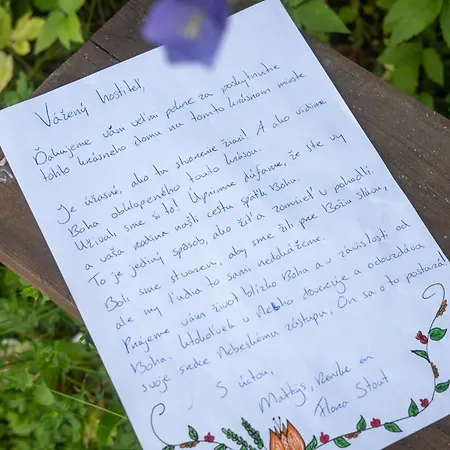 Vážený hostiteľ,
Ďakujeme vám veľmi pekne za poskytnutie
tohto krásneho domu na tomto krásnom mieste.
Je úžasné, ako tu stvorenie žiari! A ako vidíme
Boha obklopeného touto krásou.
Užívali sme si to! Úprimne dúfame, že ste vy
a vaša rodina našli cestu späť k Bohu.
To je jediný spôsob, ako žiť a zomrieť v pohodlí.
Boli sme stvorení, aby sme žili pre Božiu slávu,
ale my ľudia to sami nedokážeme.
Prajeme vám život blízko Boha a v závislosti od
Boha. Ktokoľvek v Neho dôveruje a odovzdáva
svoje srdce Nebeskému zástupu, On sa o to postará!
S úctou,
Mattijs, en
Flora Stout